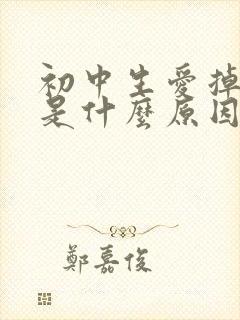 初中生愛掉
是什麼原因
鄭嘉俊